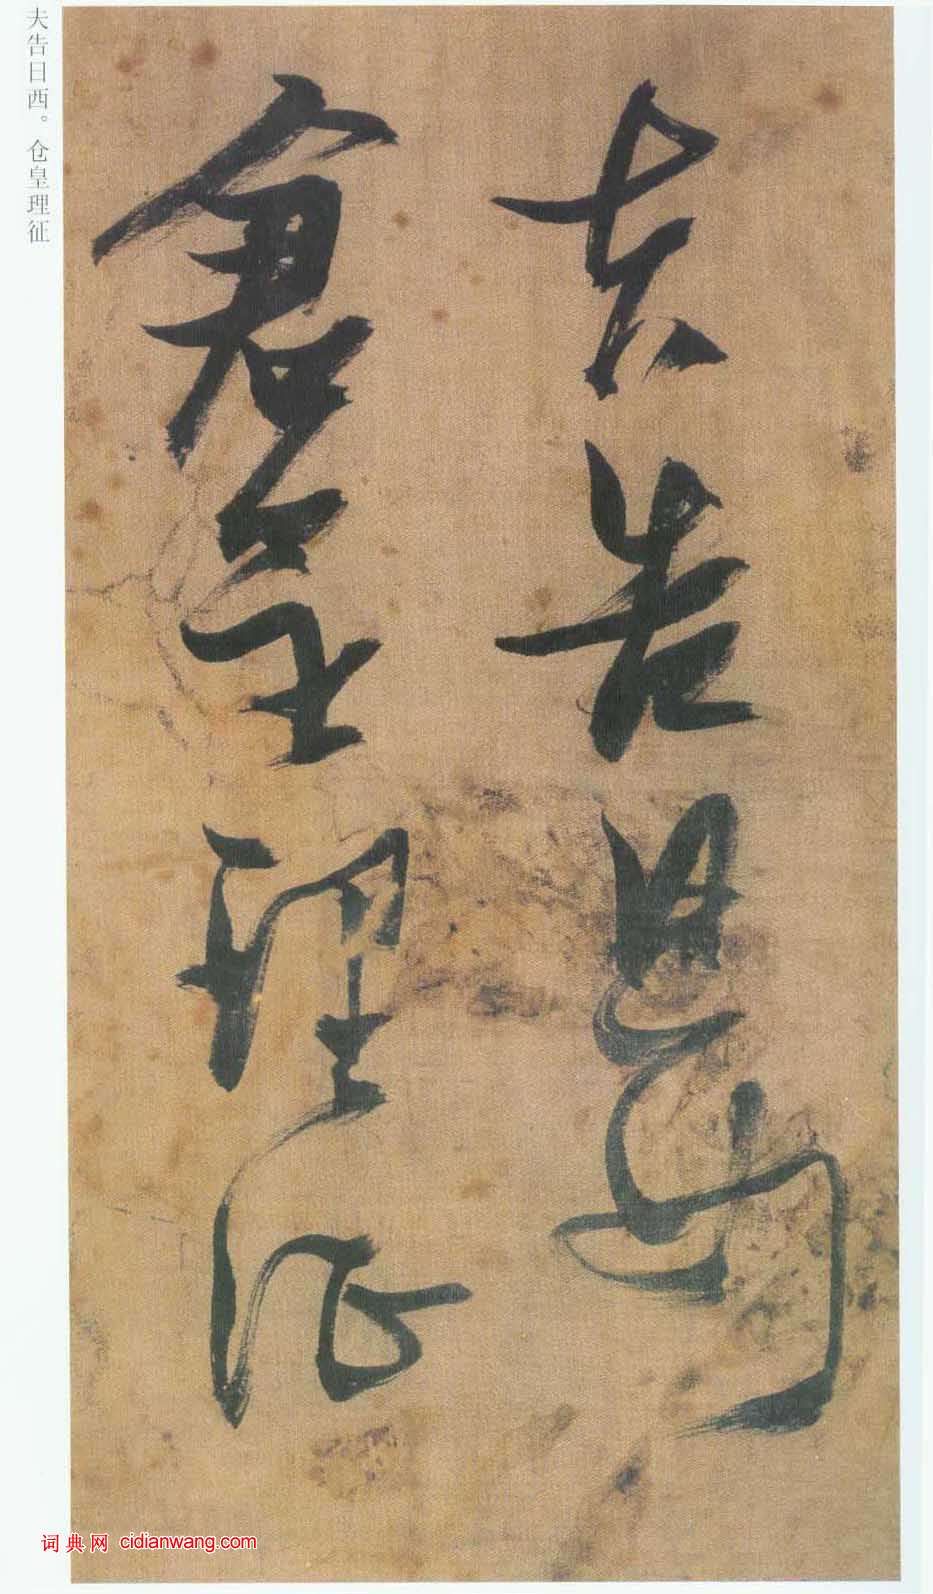 夫告日西。仓皇理征
夫告日西
倉皇理征
词典网 cidianwang.com